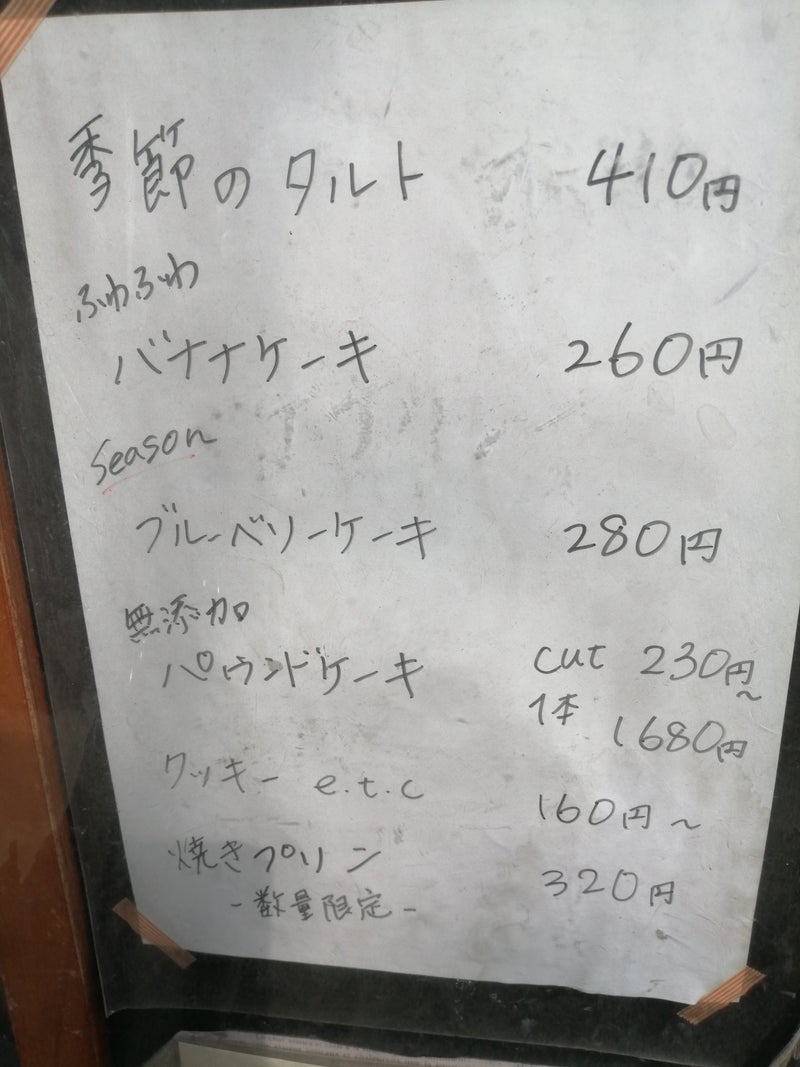 季節のタルト 410円
ふわふわ
バナナケーキ 260円
Season
ブルーベリーケーキ 280円
無添加
パウンドケーキ cut 230円~
1本 1680円
クッキー e.t.c 160円~
焼きプリン 320円
-数量限定-